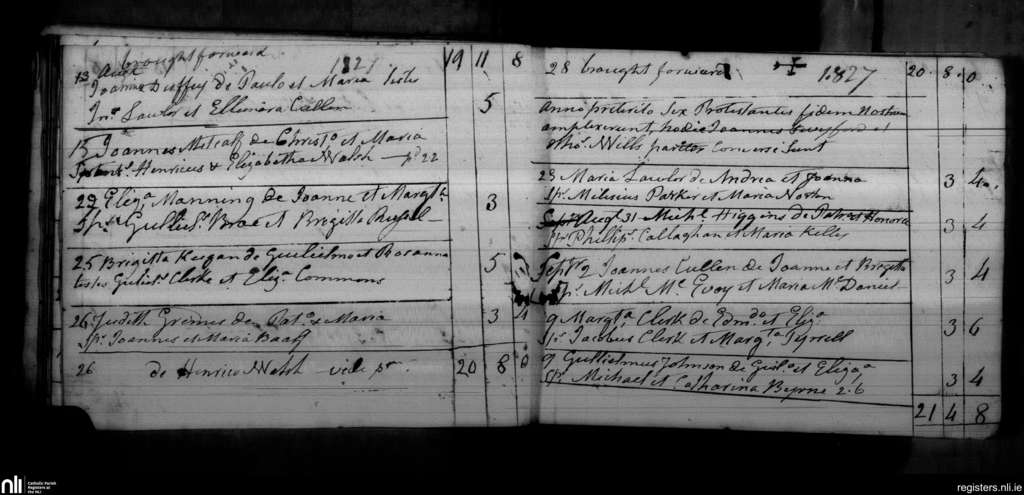 brought forward 1827 19 11 8
13 Augt
Joanna Duffy de Paulo et Maria testes
Jns Lawlor et Ellenora Cullen 5
15 Joannes Metcalf de Christo et Maria
Henricus & Elizabetha Walsh — pd 22
22 Eliza Manning de Joanne et Margta
Sps Gulielms Brae et Brigitta Russell 3
25 Brigitta Keegan de Gulielmo et Rosanna
testes Gulielms Clarke et Eliza Commons 5
26 Judith Gremes de Pato & Maria 3 4
Sps Joannes et Maria Baaff
26 de Henrico Walsh vide pr 20 8 0
28 brought forward 1827 20 8 0
Anno preterito Sex Protestantes fidem Nostram
amplexerunt, hodie Joannes et
Thos Wills pariter Conversi sunt
23 Maria Lawlor de Andrea et Joanna
Sps Milesius Parker et Maria 3 4
Augt 31 Michl Higgins de Pato et Honoria
Sps Phillips Callaghan et Maria Kelly 3 4
Septbr 2 Joannes Cullen de Joanne et Brigitta
Sps Michl Mc Evoy et Maria McDaniel 3 4
9 Margta Clerk de Edmdo et Eliza
Sps Jacobus Clerk et Margta Tyrrell 3 6
9 Gullielmus Johnson de Gulo et Eliza
Sps Michael et Catharina Byrne 2.6 3 4
21 4 8
nli
Catholic Parish
Registers at
the NLI
registers.nli.ie